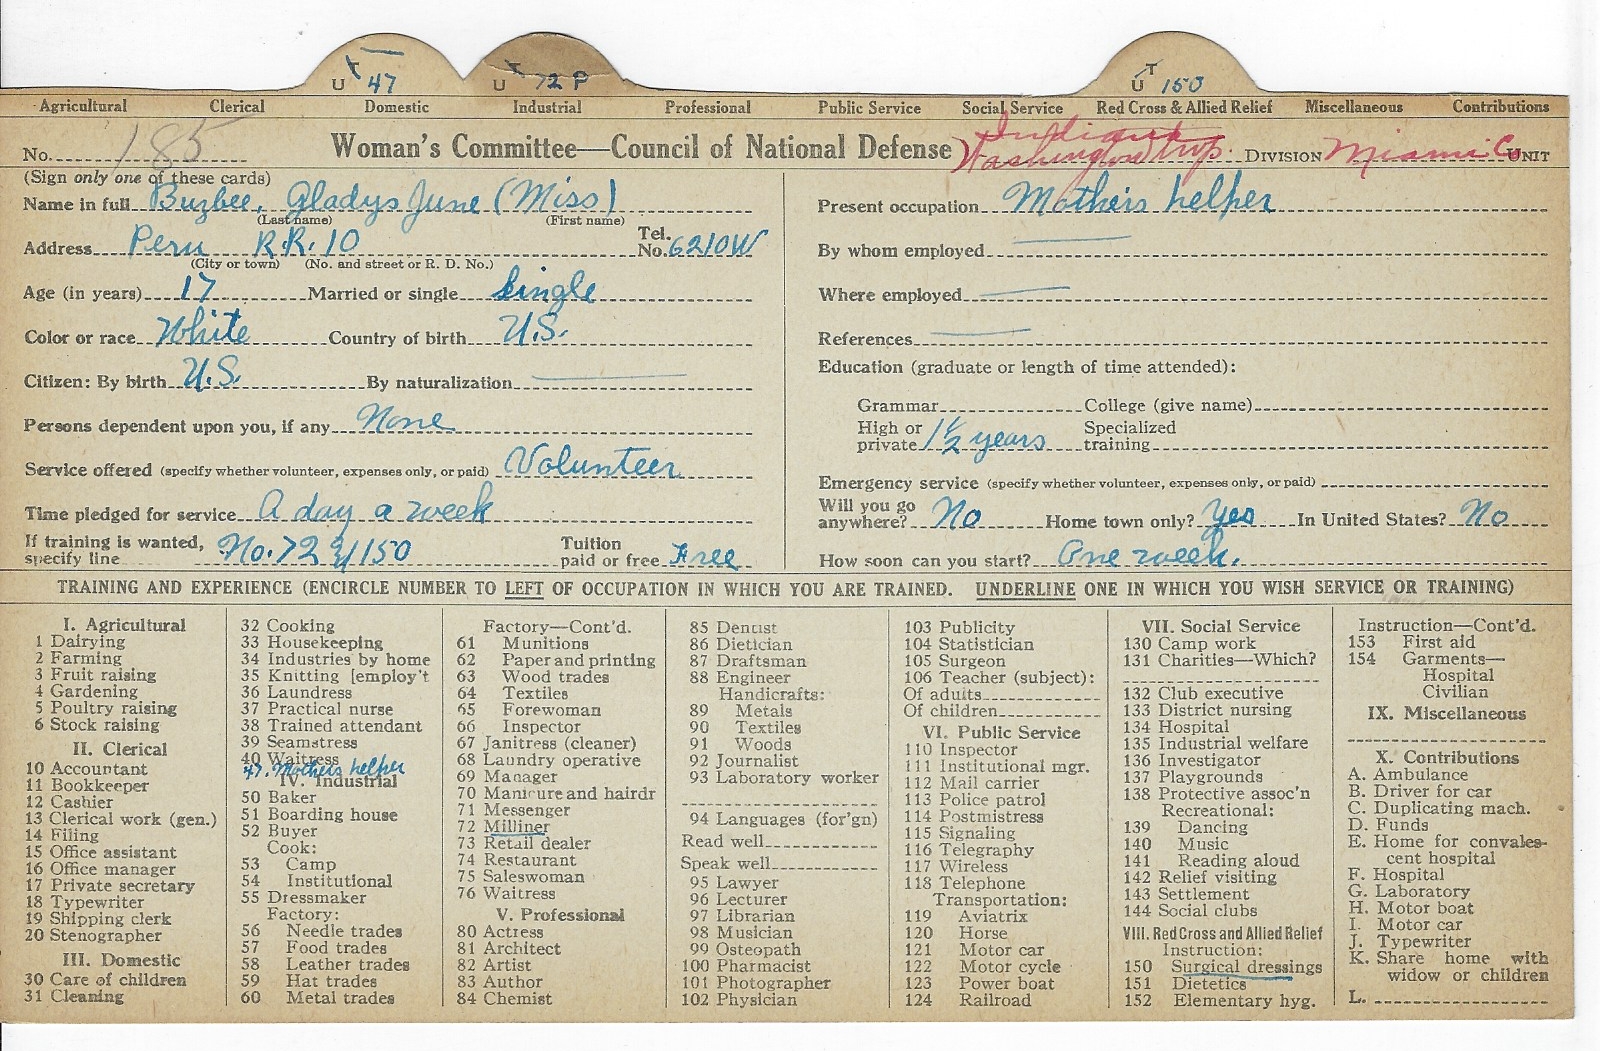 U T 47 U T 72 P U T 150
Agricultural Clerical Domestic Industrial Professional Public Service Social Service Red Cross & Allied Relief Miscellaneous Contributions
No. 185 Woman's Committee—Council of National Defense Indiana Washington twp. DIVISION Miami Co UNIT
(Sign only one of these cards)
Name in full Buzbee, Gladys June (Miss)
(Last name) (First name)
Address Peru R.R. 10 Tel. No. 6210W
(City or town) (No. and street or R. D. No.)
Age (in years) 17 Married or single Single
Color or race White Country of birth U.S.
Citizen: By birth U.S. By naturalization
Persons dependent upon you, if any None
Service offered (specify whether volunteer, expenses only, or paid) Volunteer
Time pledged for service A day a week
If training is wanted, specify line No. 72 & 150 Tuition paid or free Free
Present occupation Mother's helper
By whom employed
Where employed
References
Education (graduate or length of time attended):
Grammar College (give name)
High or private 1 1/2 years Specialized training
Emergency service (specify whether volunteer, expenses only, or paid)
Will you go anywhere? No Home town only? Yes In United States? No
How soon can you start? One week.
TRAINING AND EXPERIENCE (ENCIRCLE NUMBER TO LEFT OF OCCUPATION IN WHICH YOU ARE TRAINED. UNDERLINE ONE IN WHICH YOU WISH SERVICE OR TRAINING)
I. Agricultural
1 Dairying
2 Farming
3 Fruit raising
4 Gardening
5 Poultry raising
6 Stock raising
II. Clerical
10 Accountant
11 Bookkeeper
12 Cashier
13 Clerical work (gen.)
14 Filing
15 Office assistant
16 Office manager
17 Private secretary
18 Typewriter
19 Shipping clerk
20 Stenographer
III. Domestic
30 Care of children
31 Cleaning
32 Cooking
33 Housekeeping
34 Industries by home
35 Knitting [employ't
36 Laundress
37 Practical nurse
38 Trained attendant
39 Seamstress
40 Waitress
47. Mothers helper
IV. Industrial
50 Baker
51 Boarding house
52 Buyer
Cook:
53 Camp
54 Institutional
55 Dressmaker
Factory:
56 Needle trades
57 Food trades
58 Leather trades
59 Hat trades
60 Metal trades
Factory—Cont'd.
61 Munitions
62 Paper and printing
63 Wood trades
64 Textiles
65 Forewoman
66 Inspector
67 Janitress (cleaner)
68 Laundry operative
69 Manager
70 Manicure and hairdr
71 Messenger
72 Milliner
73 Retail dealer
74 Restaurant
75 Saleswoman
76 Waitress
V. Professional
80 Actress
81 Architect
82 Artist
83 Author
84 Chemist
85 Dentist
86 Dietician
87 Draftsman
88 Engineer
Handicrafts:
89 Metals
90 Textiles
91 Woods
92 Journalist
93 Laboratory worker
94 Languages (for'gn)
Read well
Speak well
95 Lawyer
96 Lecturer
97 Librarian
98 Musician
99 Osteopath
100 Pharmacist
101 Photographer
102 Physician
103 Publicity
104 Statistician
105 Surgeon
106 Teacher (subject):
Of adults
Of children
VI. Public Service
110 Inspector
111 Institutional mgr.
112 Mail carrier
113 Police patrol
114 Postmistress
115 Signaling
116 Telegraphy
117 Wireless
118 Telephone
Transportation:
119 Aviatrix
120 Horse
121 Motor car
122 Motor cycle
123 Power boat
124 Railroad
VII. Social Service
130 Camp work
131 Charities—Which?
132 Club executive
133 District nursing
134 Hospital
135 Industrial welfare
136 Investigator
137 Playgrounds
138 Protective assoc'n
Recreational:
139 Dancing
140 Music
141 Reading aloud
142 Relief visiting
143 Settlement
144 Social clubs
VIII. Red Cross and Allied Relief
Instruction:
150 Surgical dressings
151 Dietetics
152 Elementary hyg.
Instruction—Cont'd.
153 First aid
154 Garments—
Hospital
Civilian
IX. Miscellaneous
X. Contributions
A. Ambulance
B. Driver for car
C. Duplicating mach.
D. Funds
E. Home for convales-
cent hospital
F. Hospital
G. Laboratory
H. Motor boat
I. Motor car
J. Typewriter
K. Share home with
widow or children
L.